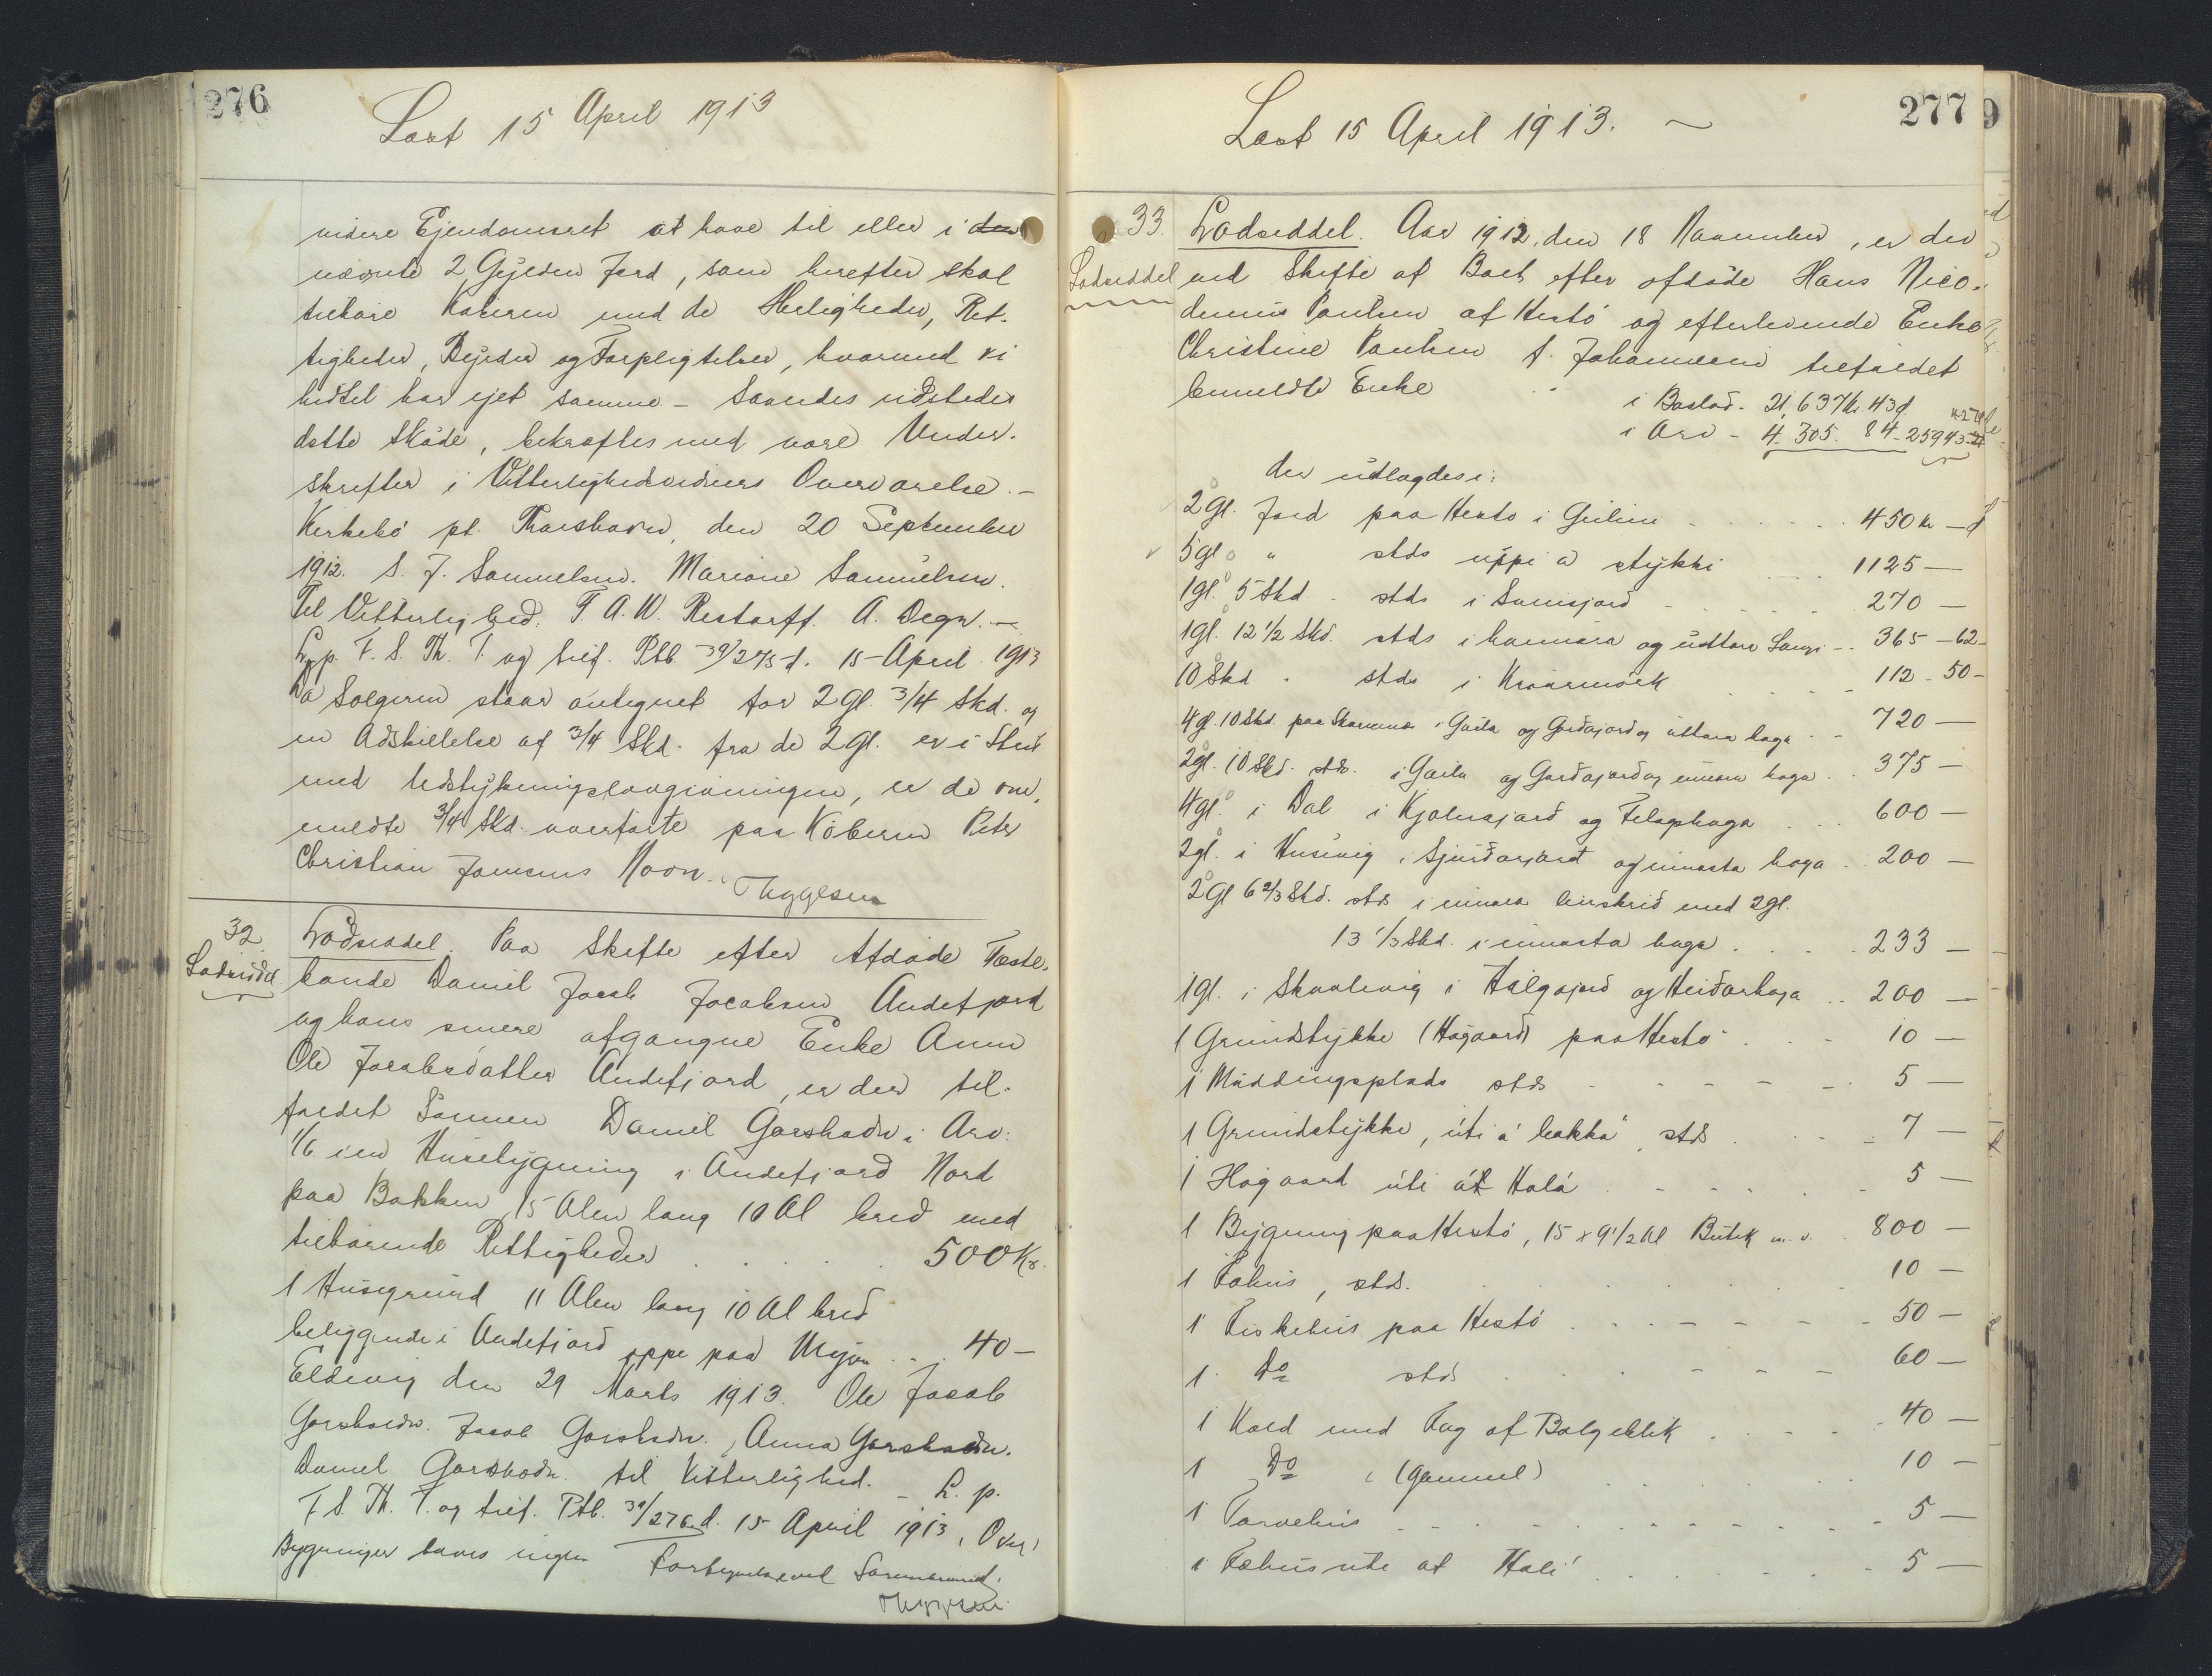 276
Læst 15 April 1913
videre Ejendomsret at have til eller i den
nævnte 2 Gylden Jord, som herefter skal
tilhøre Køberen med de Herligheder, Ret-
tigheder, Byrder og Forpligtelser, hvormed vi
hidtil har ejet samme - Saaledes udstedes
dette Skøde, bekræftes med vore Under-
skrifter i Vitterlighedsvidners Overværelse. -
Kirkebø pt. Thorshavn, den 20 September
1912. S. J. Samuelsen. Marione Samuelsen.
Til Vitterlighed. T. A. W. Restorff. A. Degn. -
L. p. F. S. Th. T. og tilf. Ptb. 39/275 d. 15 April 1913
Da Sælgeren staar antegnet for 2 Gl. 3/4 Skd. og
en Adskillelse af 3/4 Skd. fra de 2 Gl. er i Strid
med Udstykningslovgivningen, er de om-
meldte 3/4 Skd. overførte paa Køberen Peter
Christian Joensens Navn. Thygesen
32.
Lodseddel.
Lodseddel. Paa Skifte efter Afdøde Fæste-
bonde Daniel Jacob Jacobsen Andefjord
og hans senere afgangne Enke Anna
Ole Jacobsdatter Andefjord, er der til-
faldet Sønnen Daniel Garshodn i Arv:
1/6 i en Husebygning i Andefjord Nord
paa Bakken 15 Alen lang 10 Al bred med
tilhørende Rettigheder . . . . . 500 Kr.
1 Husegrund 11 Alen lang 10 Al bred
beliggende i Andefjord oppe paa . . . 40 -
Eldevig den 29 Marts 1913. Ole Jacob
Garshodn. Jacob Garshodn. Anna Garshodn.
Daniel Garshodn. til Vitterlighed. - L. p.
F. S. Th. T. og tilf. Ptb. 39/276 d. 15 April 1913, Over
Bygninger haves ingen
Thygesen
277
Læst 15 April 1913. ~
33.
Lodseddel
Lodseddel. Aar 1912, den 18 November, er der
ved Skifte af Boet efter afdøde Hans Nico-
demus Poulsen af Hestø og efterlevende Enke
Christine Poulsen f. Johannesen tilfaldet
bemeldte Enke
i Boslod - 21,637 Kr. 43 d.
i Arv - 4 305. 84 - 25943-27
der udlagdes i:
2 gl. Jord paa Hestø i Geiline . . . . . . 450 Kr - d
5 gl " stds uppi a stykki . . . . 1125 -
1 gl. 5 Skd - stds i Sunisjord - . . . . . 270 -
1 gl. 12 1/2 Skd. stds i hammara og uttara - . . 365 - 62 -
10 Skd " stds i . . . . . - 112 - 50 -
4 gl. 10 Skd. paa Skarvanes i Gøila og Gardajord og uttara haga . . 720 -
2 gl. 10 Skd. stds. i Gøila og Gardajord og innara haga . . 375 -
4 gl. i Dal i Kjølnajord og Felagshaga . . . 600 -
2 gl. i Husevig i Sjurdarjord og innasta haga . 200 -
2 gl 6 2/3 Skd. stds i innara leirskrid med 2 gl.
13 1/3 Skd. i innasta haga . . . . . 233 -
1 gl. i Skaalevig i Helgajord og Heidarhaga . . 200 -
1 Grundstykke (Høgaard) paa Hestø . . . 10 -
1 Møddingsplads stds - - - - - - 5 -
1 Grundstykke, "úti á bakka", stds . . . . 7 -
1 Høgaard úti át Halá . - - . . - 5 -
1 Bygning paa Hestø, 15 x 9 1/2 Al Butik m. v. . 800 -
1 Fæhus, stds. . . . . . . 10 -
1 Fiskehus paa Hestø . . - - - - - 50 -
1 Do stds . . . - - - 60 -
1 Kold med Tag af Bølgeblik . . . - - 40 -
1 Do (gammel) . . . . . 10 -
1 Tørvehus - - - - - - - - - - 5 -
1 Fæhus ute at Hali . . . . . . . 5 -